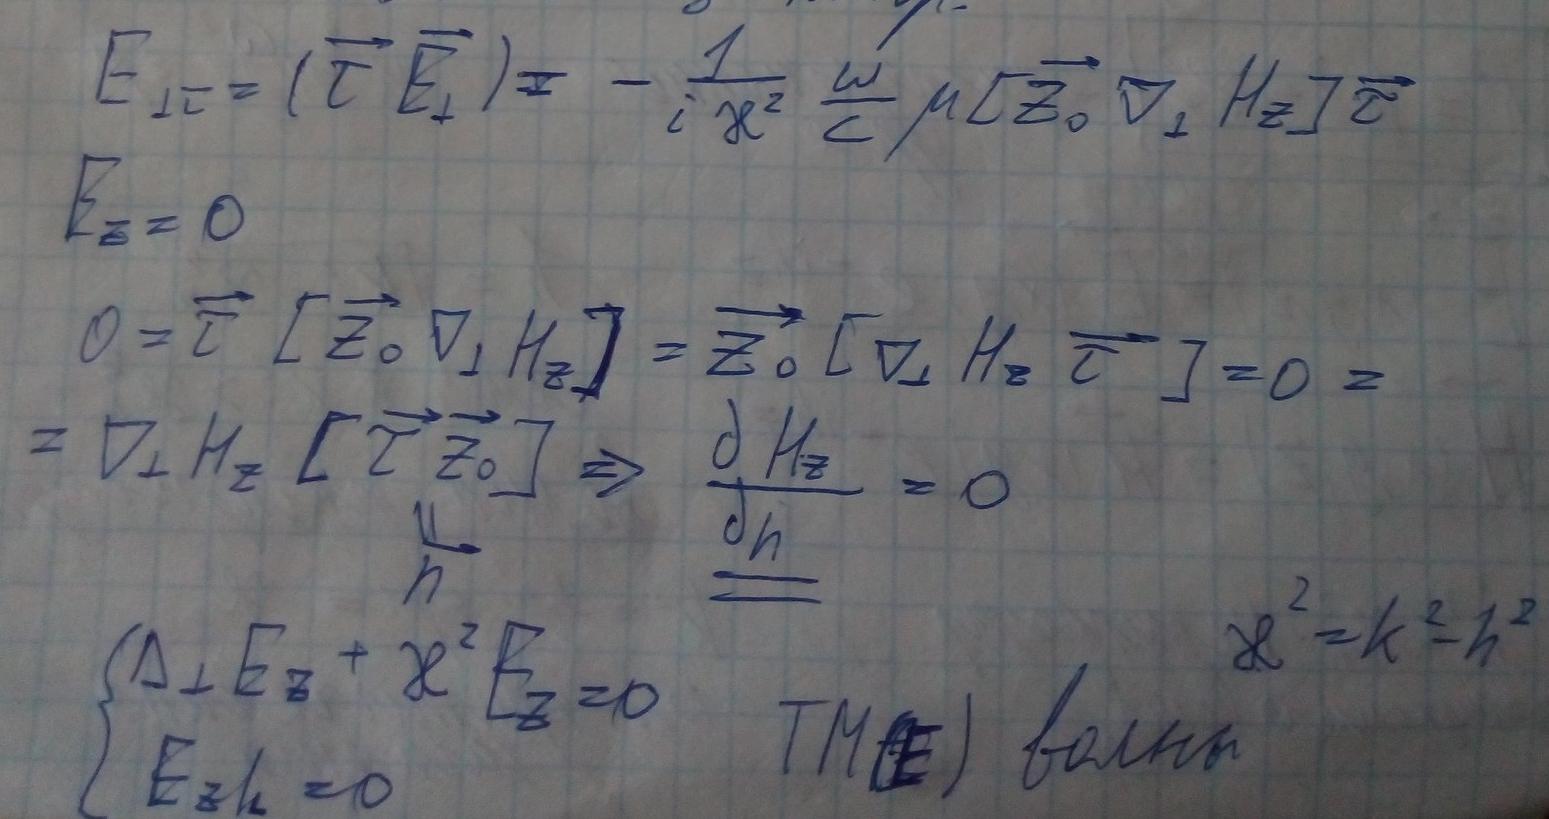 E⊥τ = (τ⃗ E⃗⊥) = - 1/(iæ²) ω/c μ [z⃗₀ ∇⊥ H_z] τ⃗
E_z = 0
0 = τ⃗ [z⃗₀ ∇⊥ H_z] = z⃗₀ [∇⊥ H_z τ⃗] = 0 =
= ∇⊥ H_z [τ⃗ z⃗₀] ⇒ ∂H_z/∂n = 0
n⃗
æ² = k² - h²
{ Δ⊥E_z + æ²E_z = 0
E_z k = 0
TM(E) волны